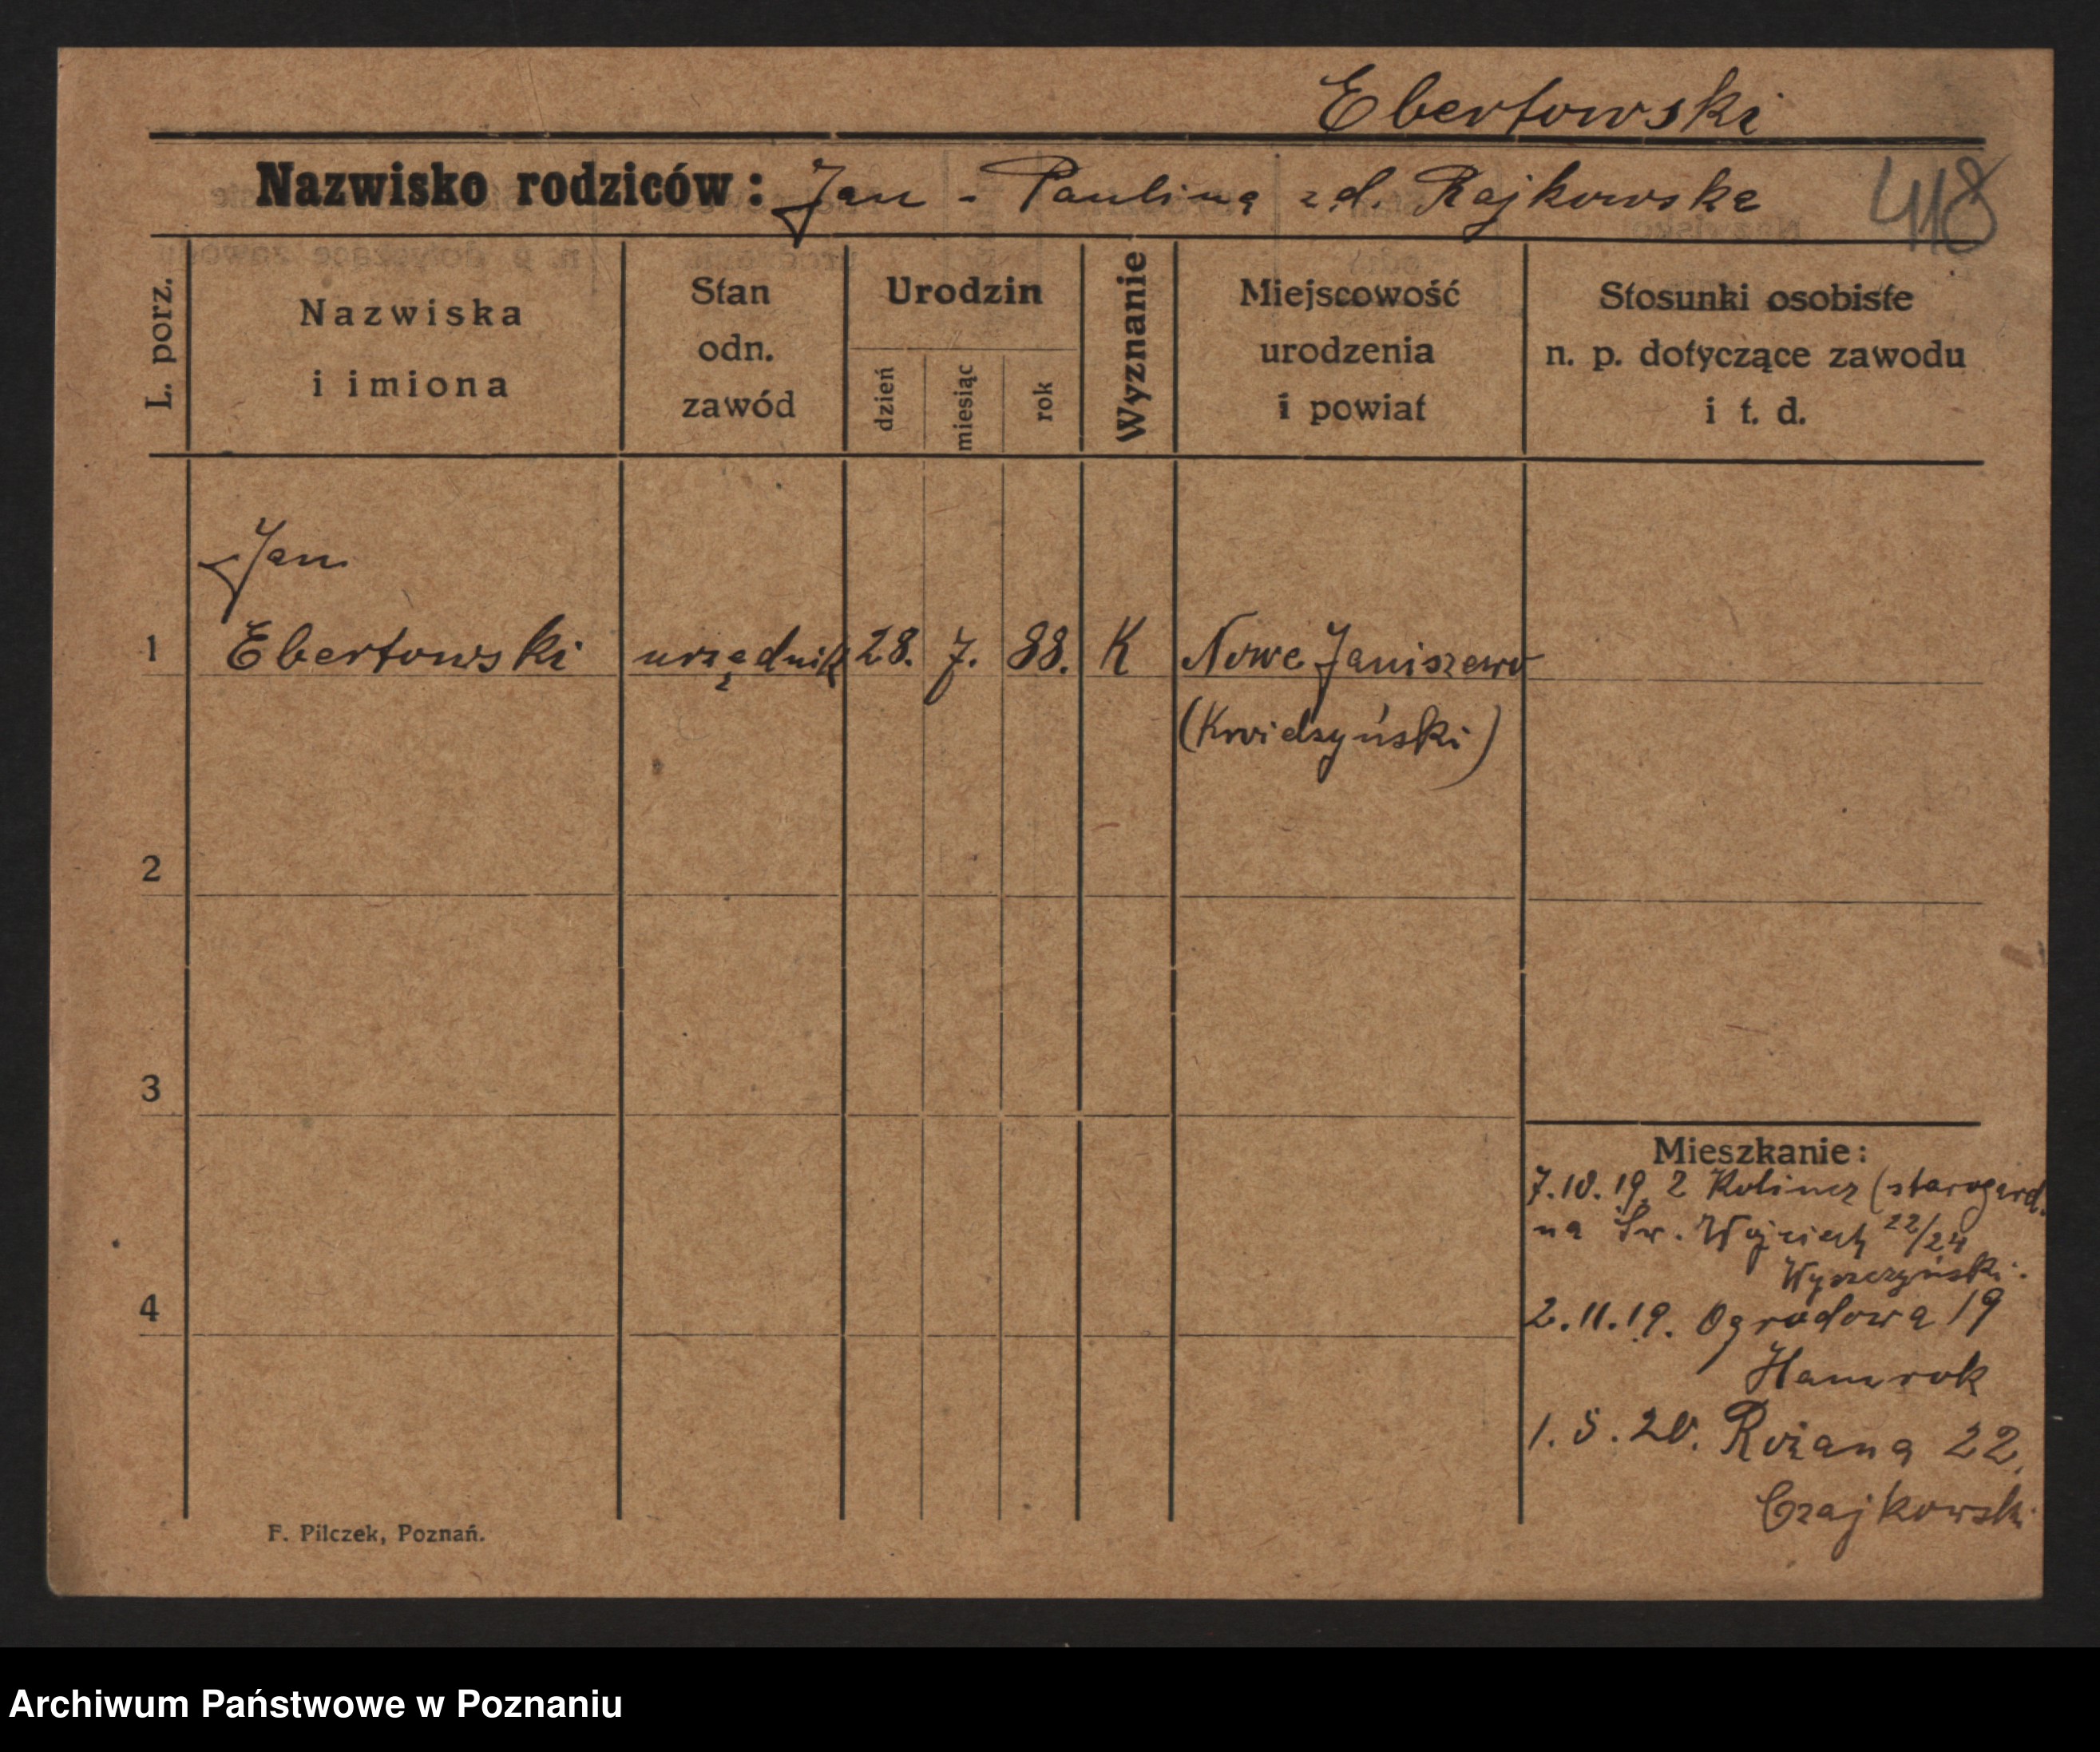 Ebertowski
Nazwisko rodziców: Jan - Paulina zd. Rajkowska
418
L. porz.
Nazwiska
i imiona
Stan
odn.
zawód
Urodzin
dzień
miesiąc
rok
Wyznanie
Miejscowość
urodzenia
i powiat
Stosunki osobiste
n. p. dotyczące zawodu
i t. d.
Jan
1 Ebertowski urzędnik 28. 7. 88. K Nowe Janiszewo
(Kwidzyński)
2
3
4
Mieszkanie:
7.10.19 z Kolincz (starogard.
na Św. Wojciech 22/24
Wyszczyński.
2.11.19. Ogrodowa 19
Hamrok
1.5.20. Różana 22.
Czajkowski
F. Pilczek, Poznań.
Archiwum Państwowe w Poznaniu